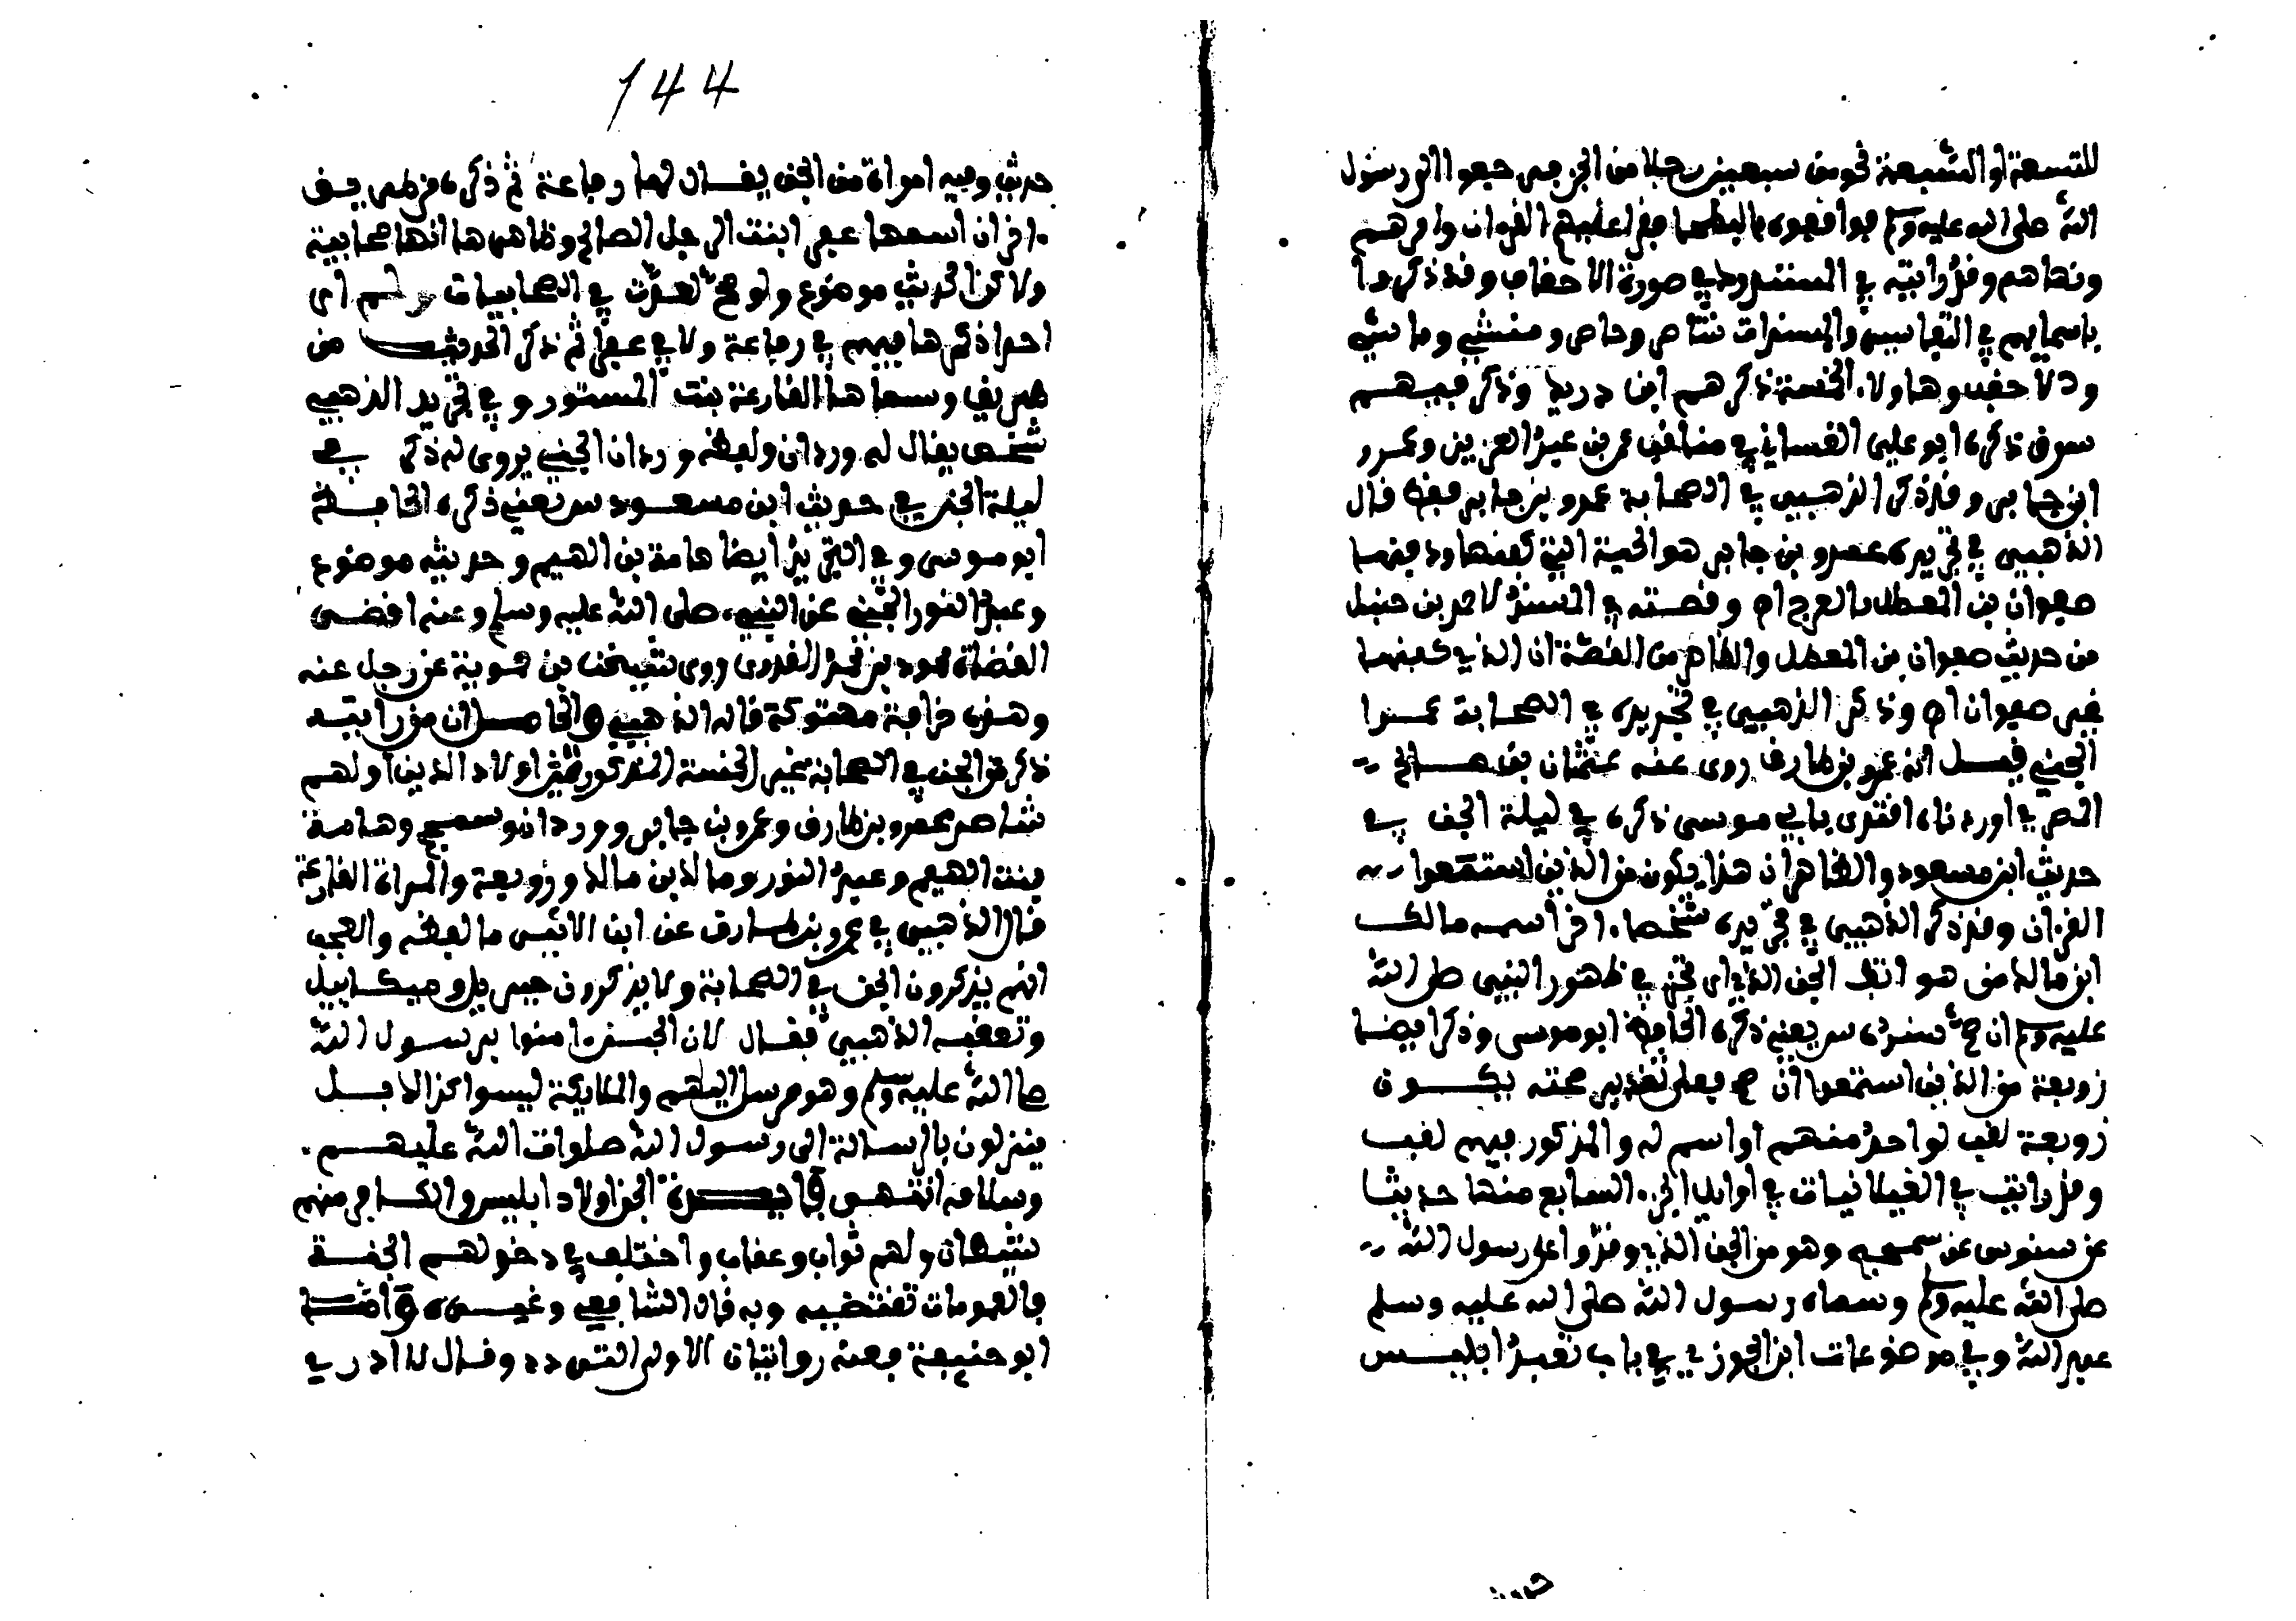 للتسعة او السبعة نحو من سبعين رجلا من الجن فرجعوا الى رسول
الله صلى الله عليه وسلم فوافوه بالبطحا فقرا عليهم القرءان وامرهم
ونهاهم وقد رايته في المستدرك في صورة الاحقاف وقد ذكروا
باسمايهم في التفاسير والمسندات شاص وماص ومنشي وماشي
والاحقب وهاولاء الخمسة ذكرهم ابن دريد وذكر فيهم
سرق ذكره ابو علي الغساني في مناقب عمر بن عبد العزيز وعمرو
ابن جابر وقد ذكر الذهبي في الصحابة عمرو بن جابر فقد قال
الذهبي في تجريده عمرو بن جابر هو الحية التي كفنها ودفنها
صفوان بن المعطل بالعرج اه وقصته في المسند لاحمد بن حنبل
من حديث صفوان بن المعطل والظاهر من القصة ان الذي كفنها
غير صفوان اه وذكر الذهبي في تجريده في الصحابة عمرا
الجني قيل انه عمرو بن طارق روى عنه عثمان بن صالح
المصري اوردناه اقتدى بابي موسى ذكره في ليلة الجن في
حديث ابن مسعود والظاهر ان هذا يكون من الذين استمعوا
القرءان وقد ذكر الذهبي في تجريده شخصا ءاخر اسمه مالك
ابن مالك من هواتف الجن الذي اري تجنى في ظهور النبي صلى الله
عليه وسلم ان صح سنده سريعيه ذكره الحافظ ابو موسى وذكر ايضا
زوبعة من الذين استمعوا ان صح فعلى تقدير صحته يكون
زوبعة لقب لواحد منهم او اسم له والمذكور فيهم لقب
وقد رايت في الغيلانيات في اوايل الجزء السابع منها حديثا
عن سنوس عن سمحج وهو من الجن الذين وفدوا على رسول الله
صلى الله عليه وسلم وسماه رسول الله صلى الله عليه وسلم
عبد الله وفي موضوعات ابن الجوزي في باب تعبد ابليس
حديث
144
حديث وفيه امراة من الجن يقال لها رفاعة ثم ذكره من طريق
ءاخر ان اسمها عفراء ابنت الرجل الصالح وظاهرها انها صحابية
ولاكن الحديث موضوع ولو صح لعدت في الصحابيات ولم ارى
احدا ذكرها فيهم في رفاعة ولا في عفراء ثم ذكر الحديث من
طريق وسماها الفارعة بنت المستورد وفي تجريد الذهبي
شخص يقال له وردان ولفظه وردان الجني يروى له ذكر في
ليلة الجن في حديث ابن مسعود سريعيه ذكره الحافظ
ابو موسى وفي التجريد ايضا هامة بن الهيم وحديثه موضوع
وعبد النور الجني عن النبيء صلى الله عليه وسلم وعنه اقضى
القضاة محمود بن محمد القدوى روى شيخنا بن حموية عن رجل عنه
وهذه خرافة مهتوكة قاله الذهبي والحاصل ان من رايته
ذكر من الجن في الصحابة غير الخمسة المذكورين اولاد الذين اولهم
شاصر عمرو بن طارق وعمرو بن جابر ووردان وسمحج وهامة
بنت الهيم وعبد النور ومالك بن مالك وزوبعة والمراة الفارعة
قال الذهبي في عمرو بن طارق عن ابن الاثير ما لفظه والعجب
انهم يذكرون الجن في الصحابة ولا يذكرون جبريل وميكاييل
وتعقبه الذهبي فقال لان الجن ءامنوا برسول الله
صلى الله عليه وسلم وهو مرسل اليهم والملايكة ليسوا كذا لا بل
ينزلون بالرسالة الى رسول الله صلوات الله عليهم
وسلامه انتهى فايدة الجن اولاد ابليس والكافر منهم
شيطان ولهم ثواب وعقاب واختلف في دخولهم الجنة
فالعمومات تقتضيه وبه قال الشافعي وغيره واما
ابو حنيفة فعنه روايتان الاولى التردد وقال لا ادري